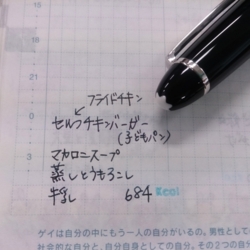 フライドチキン
セルフチキンバーガー
(子どもパン)
マカロニスープ
蒸しとうもろこし
牛乳 684 kcal
ゲイは自分の中にもう一人の自分がいるの。男性として
社会的な自分と、自分自身としての自分。その2つの自分